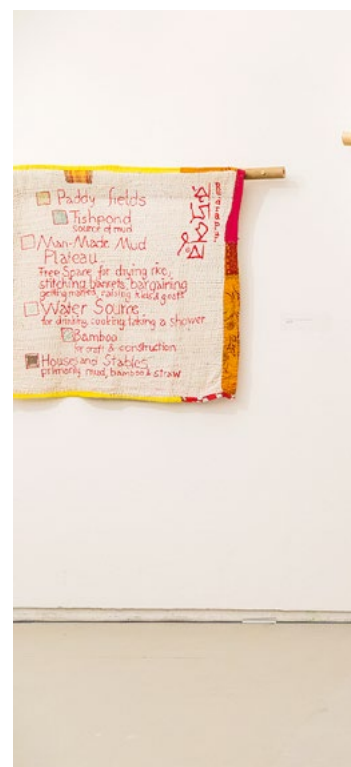 Paddy fields
Fishpond
source of mud
Man-Made Mud
Plateau
Free Space for drying rice,
stitching blankets, bargaining
getting married, raising kids & goats
Water Source
for drinking, cooking, taking a shower
Bamboo
for craft & construction
Houses and Stables
primarily mud, bamboo & straw